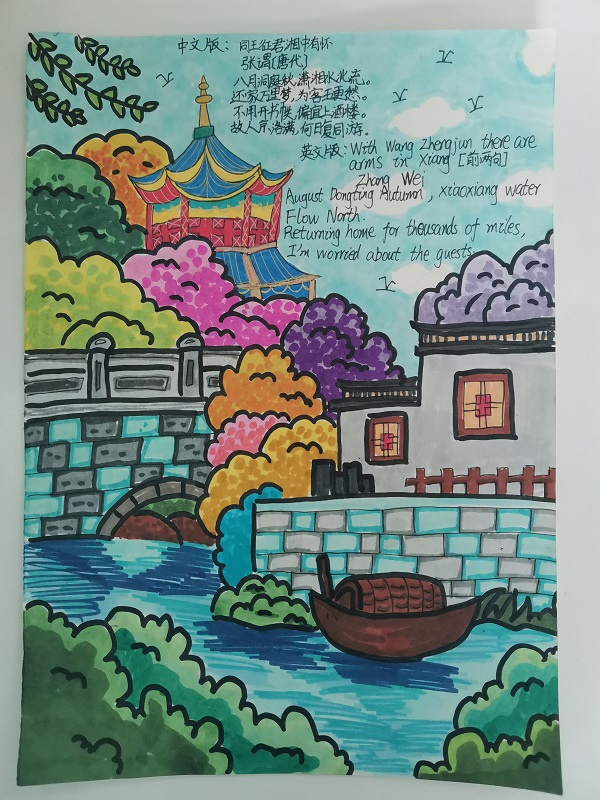 中文版：同王征君湘中有怀
张谓[唐代]
八月洞庭秋，潇湘水北流。
还家万里梦，为客五更愁。
不用开书帙，偏宜上酒楼。
故人京洛满，何日复同游。
英文版：With Wang Zhengjun, there are
arms in Xiang [前两句]
Zhang Wei
August Dongting Autumn, xiaoxiang water
Flow North.
Returning home for thousands of miles,
I'm worried about the guests.